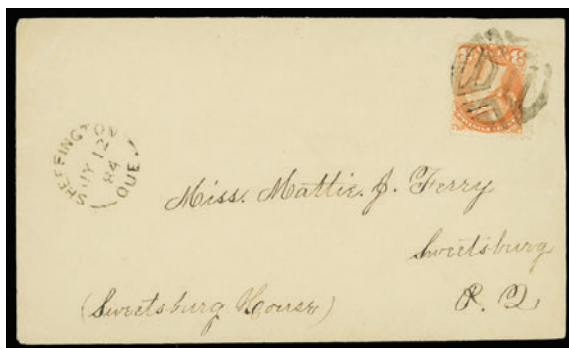 SHEFFINGTON
JY 12
84
QUE.
Miss. Mattie. J. Ferry
Sweetsburg
P. Q.
(Sweetsburg House)